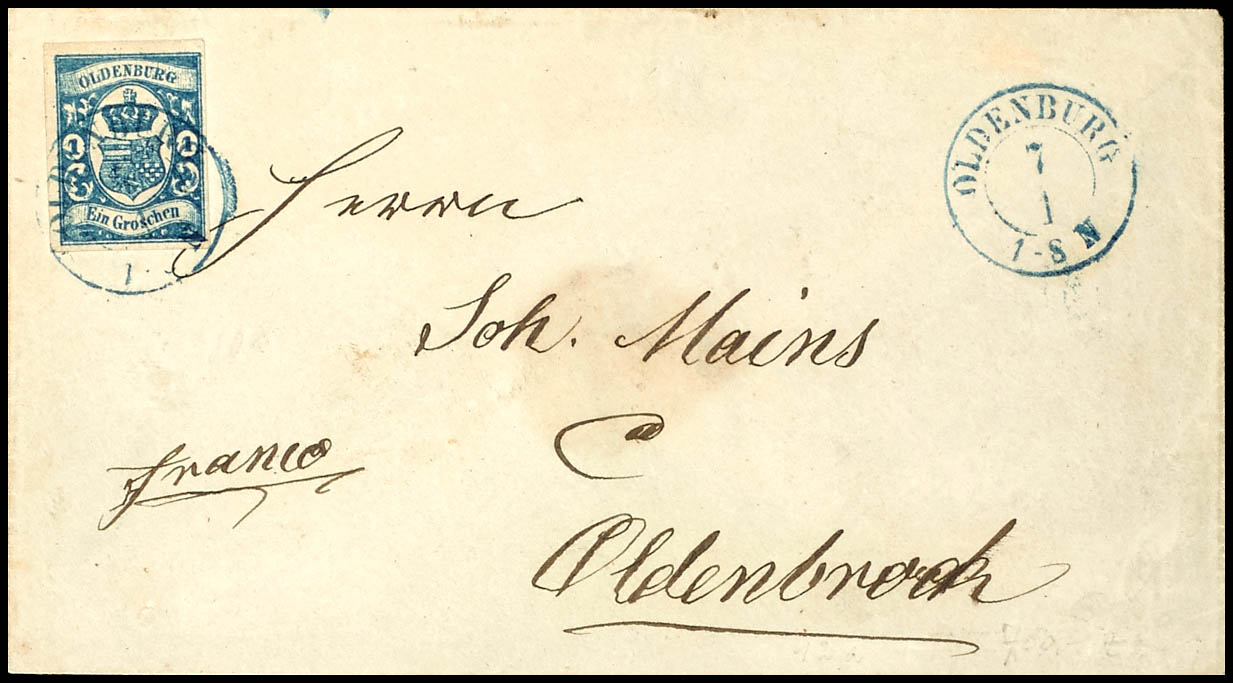 OLDENBURG
1 1
Ein Groschen
OLDENBURG
7
1
7-8 N
Herrn
Joh. Mains
franco
Oldenbrock